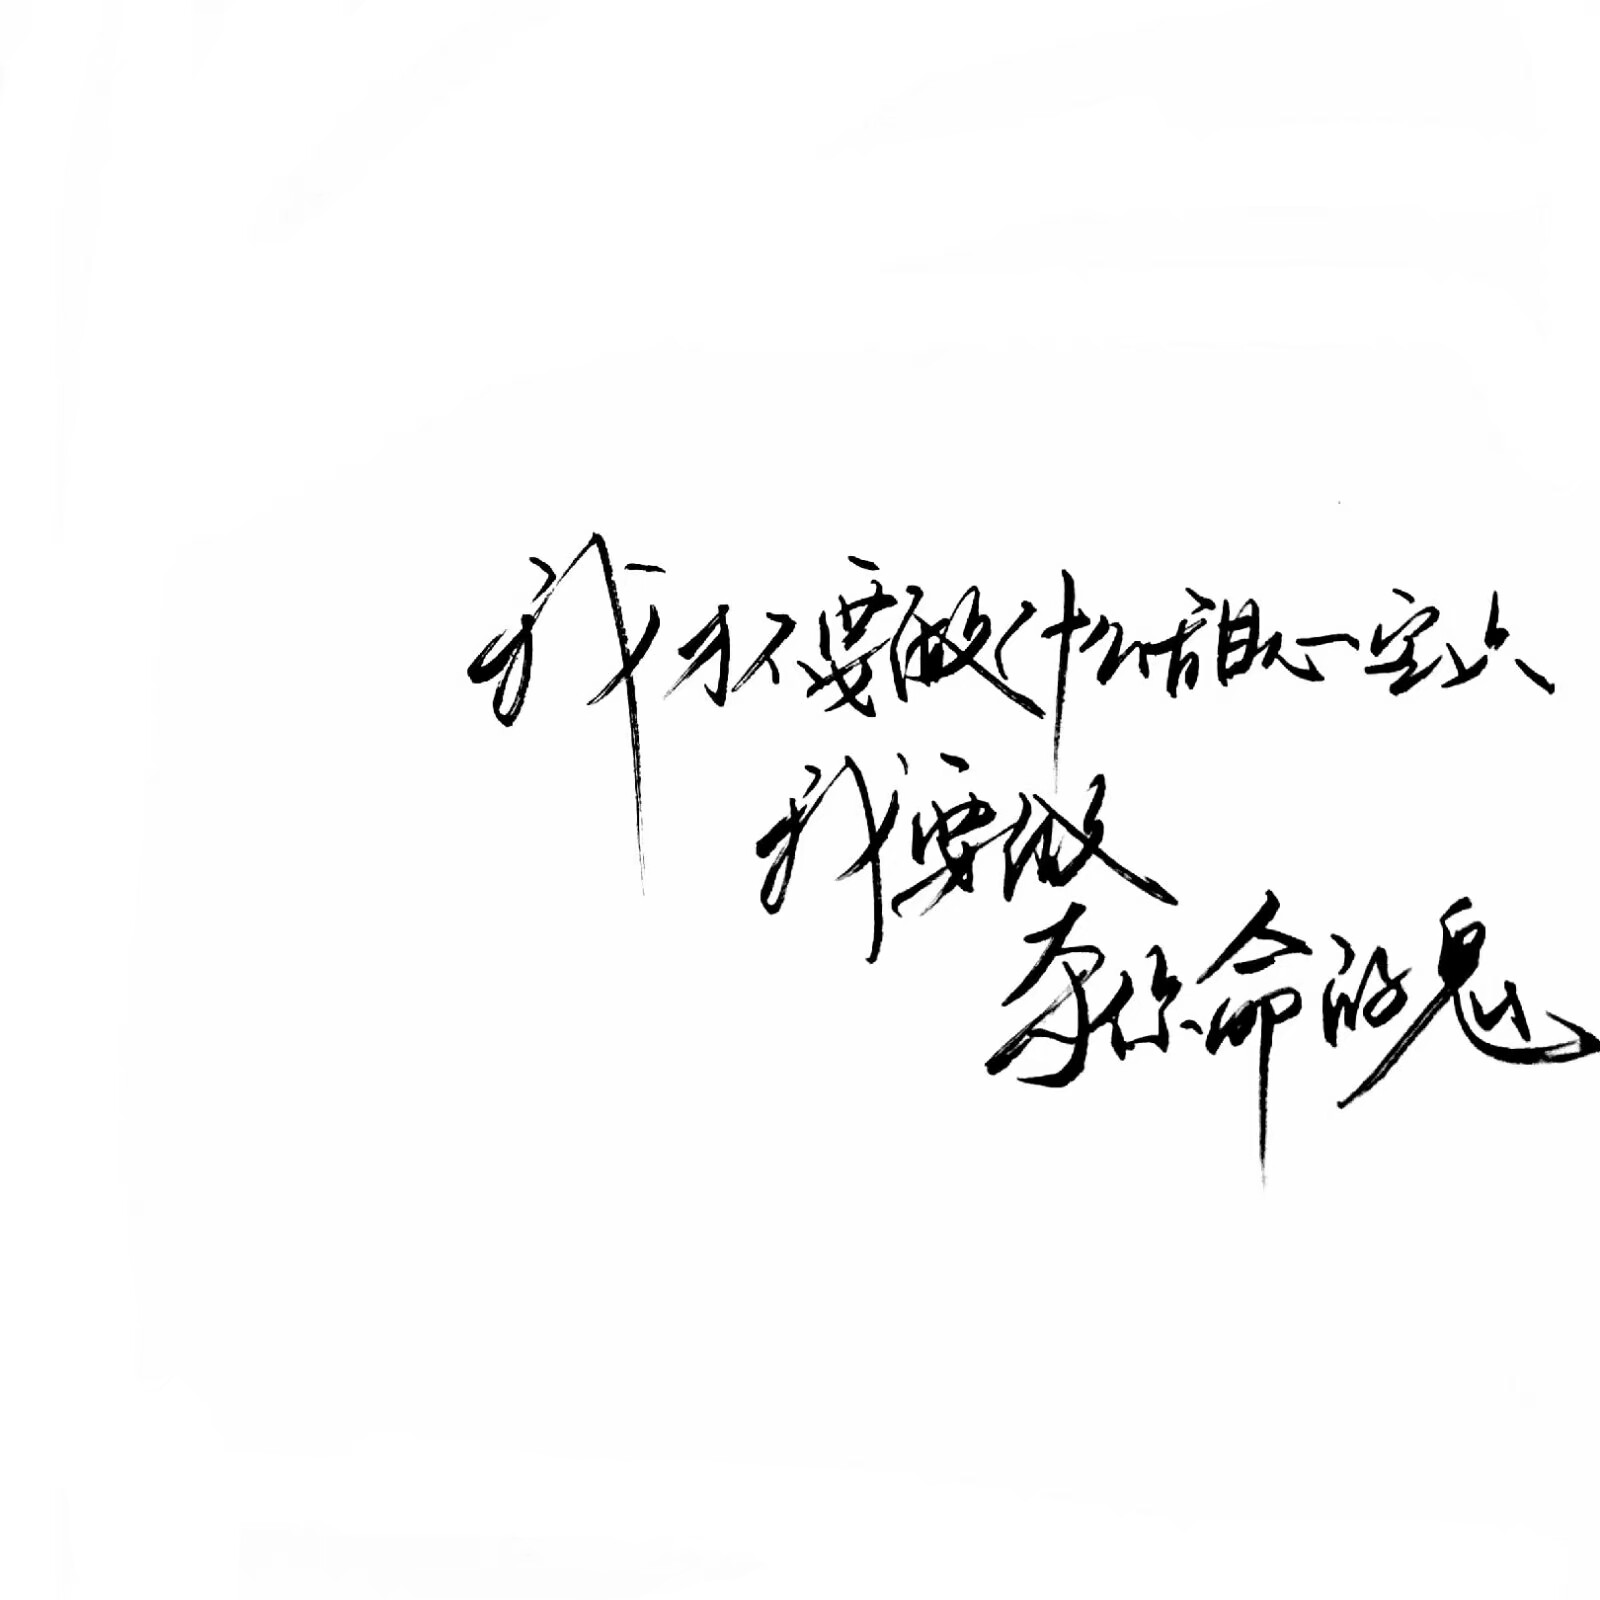 我才不要做什么甜心一定点
我要做
索你命的鬼